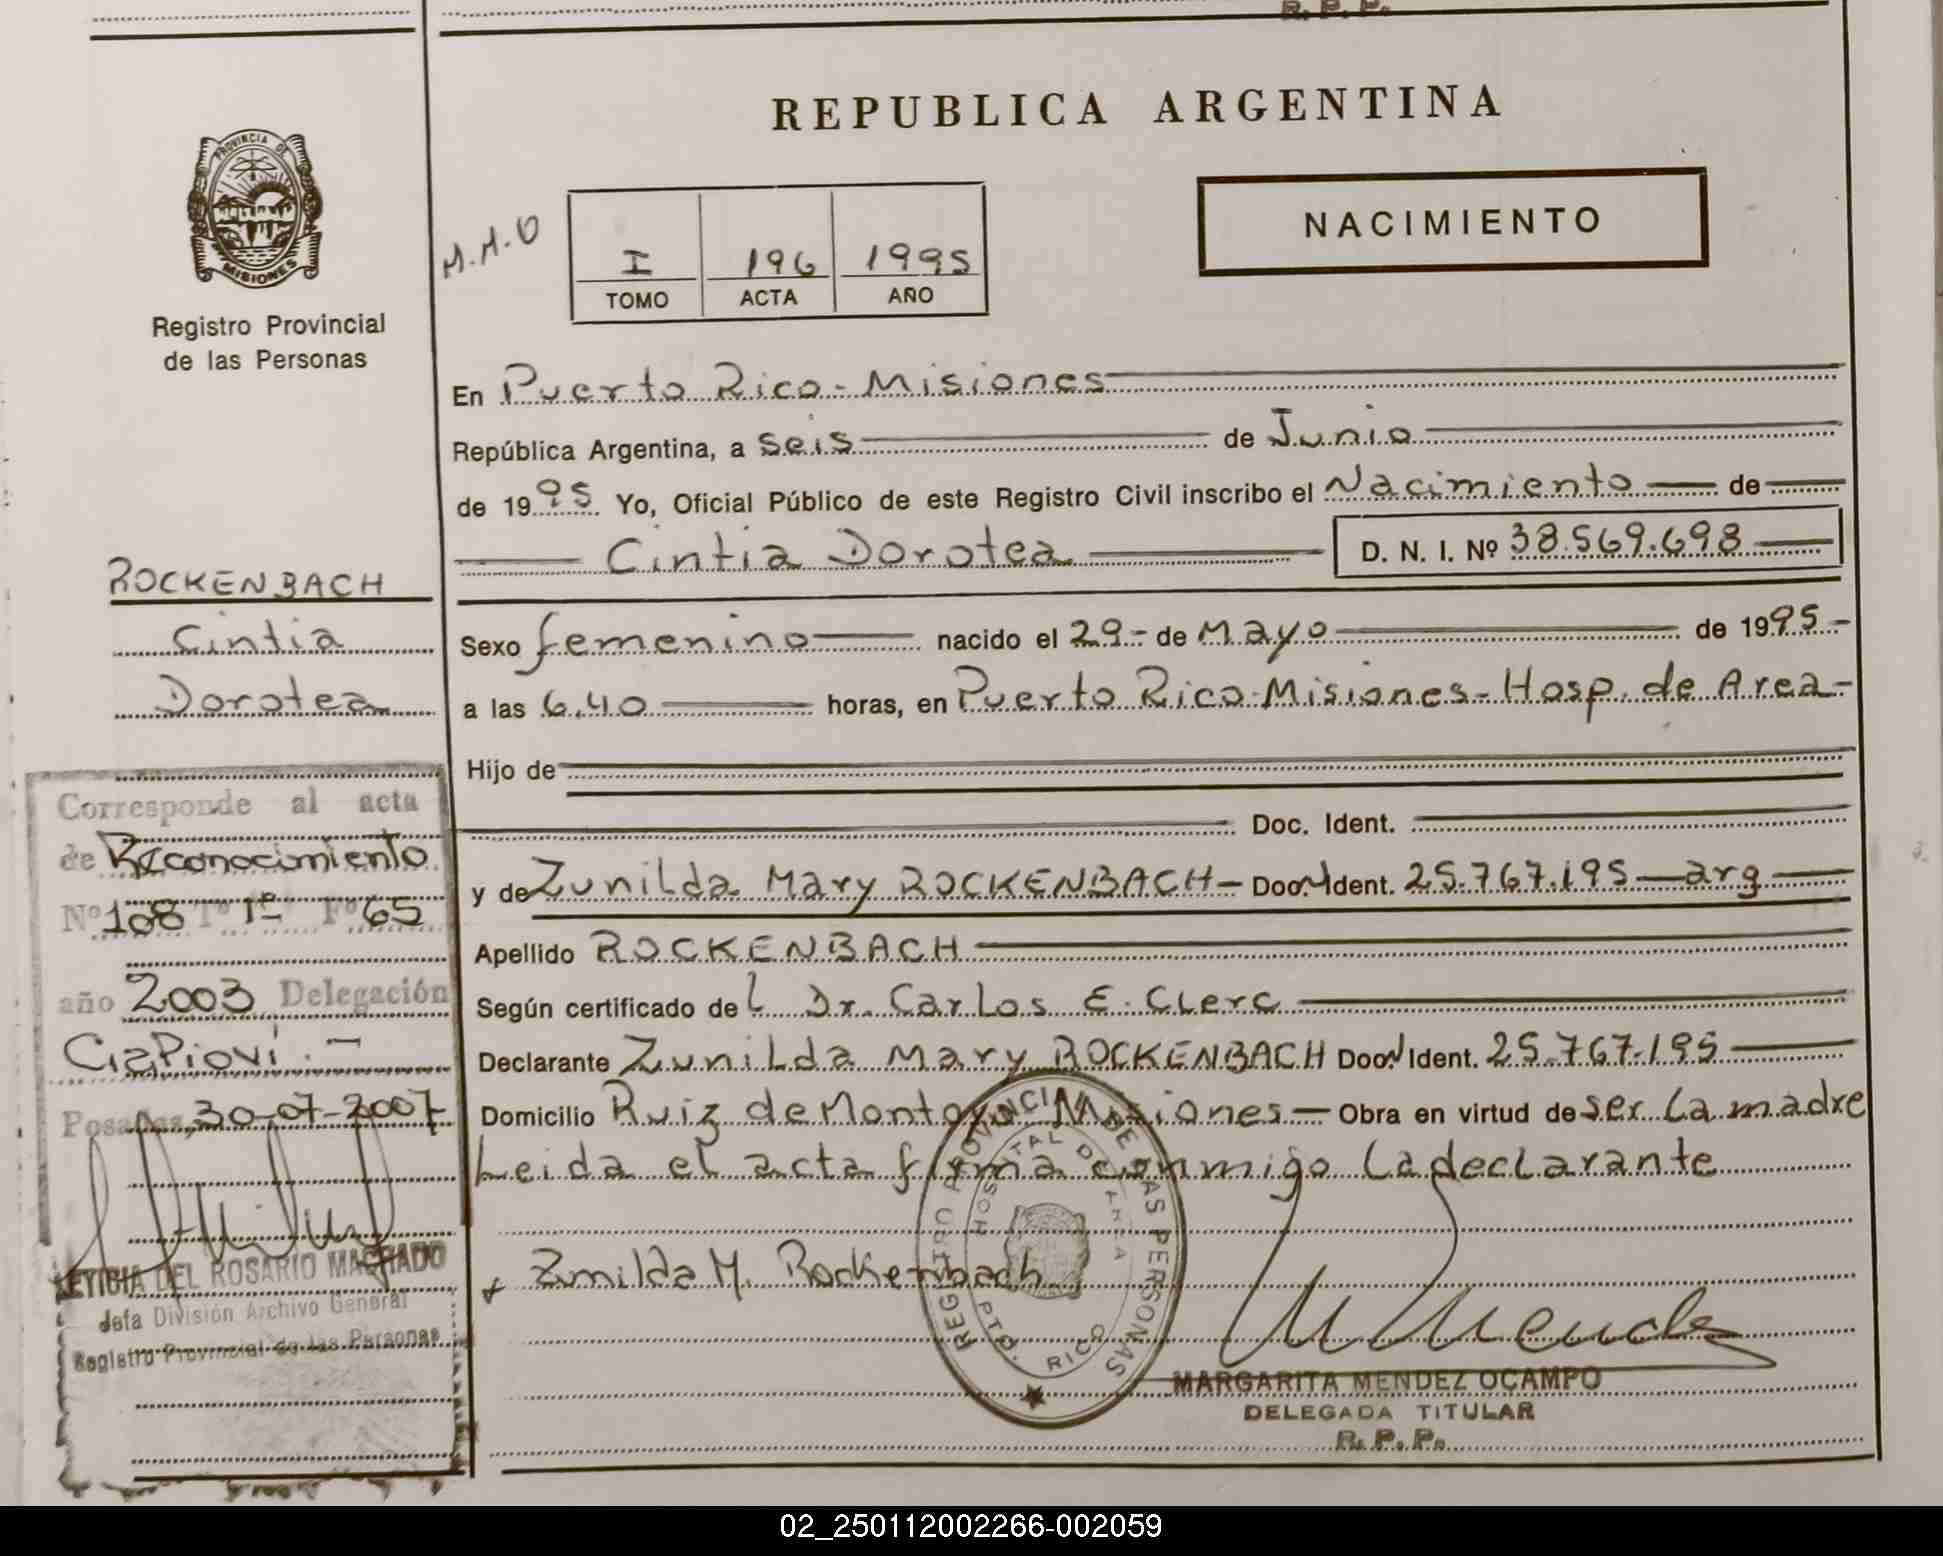 R. P. P.
REPUBLICA ARGENTINA
PROVINCIA DE
MISIONES
Registro Provincial
de las Personas
M.M.O
I 196 1995
TOMO ACTA AÑO
NACIMIENTO
En Puerto Rico - Misiones
República Argentina, a seis de Junio
de 1995 Yo, Oficial Público de este Registro Civil inscribo el Nacimiento de
Cintia Dorotea D. N. I. Nº 38.569.698
Sexo femenino nacido el 29 - de Mayo de 1995 -
a las 6,40 horas, en Puerto Rico - Misiones - Hosp. de Area -
Hijo de
Doc. Ident.
y de Zunilda Mary ROCKENBACH - Doc. Ident. 25.767.195 — arg
Apellido ROCKENBACH
Según certificado del Dr. Carlos E. Clerc
Declarante Zunilda Mary ROCKENBACH Doc. Ident. 25.767.195
Domicilio Ruiz de Montoya Misiones - Obra en virtud de ser la madre
Leida el acta firma conmigo la declarante
Zunilda M. Rockenbach
REGISTRO PROVINCIAL DE LAS PERSONAS
HOSPITAL DE AREA
PTO. RICO
MARGARITA MENDEZ OCAMPO
DELEGADA TITULAR
R. P. P.
ROCKENBACH
Cintia
Dorotea
Corresponde al acta
de Reconocimiento
Nº 108 Tº 1º Fº 65
año 2003 Delegación
Capioví. -
Posadas, 30-07-2007
LETICIA DEL ROSARIO MACHADO
Jefa División Archivo General
Registro Provincial de las Personas
02_250112002266-002059